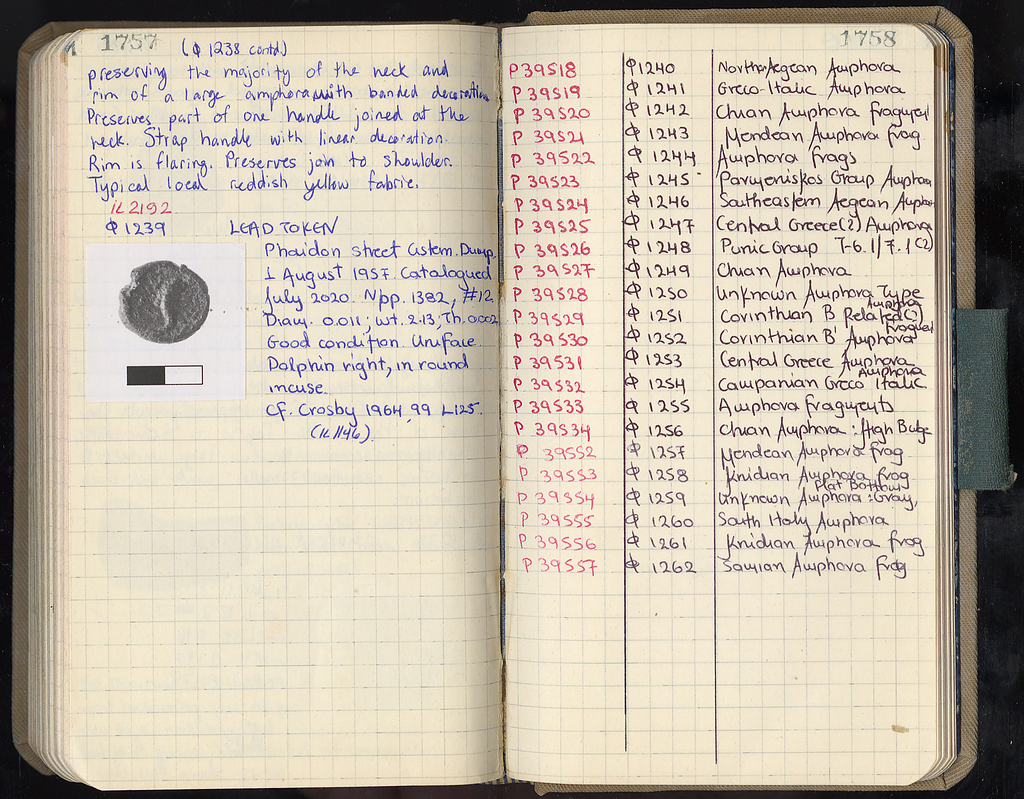 1757
(Φ 1238 contd.)
preserving the majority of the neck and
rim of a large amphora with banded decoration
Preserves part of one handle joined at the
neck. Strap handle with linear decoration.
Rim is flaring. Preserves join to shoulder.
Typical local reddish yellow fabric.
IL2192
Φ 1239 LEAD TOKEN
Phaidon street Cistern. Dump.
1 August 1957. Catalogued
July 2020. Npp. 1382, #12
Diam. 0.011; wt. 2.13; Th. 0.002
Good condition. Uniface.
Dolphin right, in round
incuse.
Cf. Crosby 1964, 99 L125.
(IL1146).
1758
P 39518 Φ 1240 North Aegean Amphora
P 39519 Φ 1241 Greco-Italic Amphora
P 39520 Φ 1242 Chian Amphora fragment
P 39521 Φ 1243 Mendean Amphora frag
P 39522 Φ 1244 Amphora frags
P 39523 Φ 1245 Parmeniskos Group Amphora
P 39524 Φ 1246 Southeastern Aegean Amphora
P 39525 Φ 1247 Central Greece(?) Amphora
P 39526 Φ 1248 Punic Group T-6.1/7.1(?)
P 39527 Φ 1249 Chian Amphora
P 39528 Φ 1250 Unknown Amphora Type
P 39529 Φ 1251 Corinthian B Related(?) Amphora
P 39530 Φ 1252 Corinthian B Amphora fragment
P 39531 Φ 1253 Central Greece Amphora
P 39532 Φ 1254 Campanian Greco Italic Amphora
P 39533 Φ 1255 Amphora fragments
P 39534 Φ 1256 Chian Amphora: High Bulge
P 39552 Φ 1257 Mendean Amphora frag
P 39553 Φ 1258 Knidian Amphora frag
P 39554 Φ 1259 Unknown Amphora: Gray, Flat Bottom
P 39555 Φ 1260 South Italy Amphora
P 39556 Φ 1261 Knidian Amphora frag
P 39557 Φ 1262 Samian Amphora frag